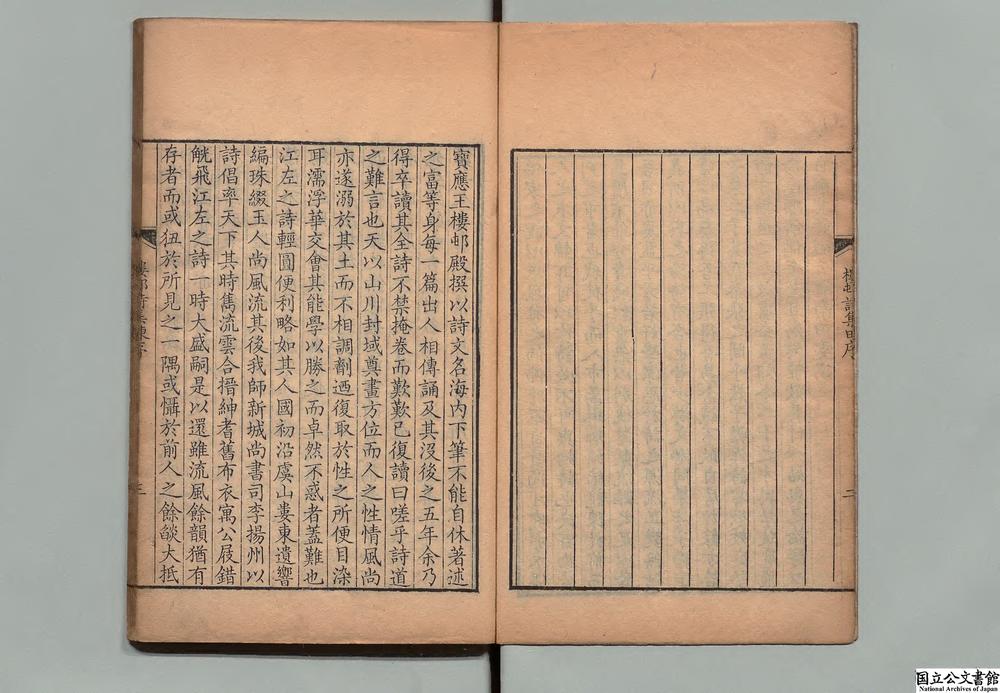 寶應王樓邨殿撰以詩文名海內下筆不能自休著述
之富等身每一篇出人相傳誦及其沒後之五年余乃
得卒讀其全詩不禁掩卷而歎歎已復讀曰嗟乎詩道
之難言也天以山川封域奠畫方位而人之性情風尚
亦遂溺於其土而不相調劑迺復取於性之所便目染
耳濡浮華交會其能學以勝之而卓然不惑者蓋難也
江左之詩輕圓便利略如其人國初沿虞山婁東遺響
編珠綴玉人尚風流其後我師新城尚書司李揚州以
詩倡率天下其時雋流雲合搢紳耆舊布衣寓公屐錯
觥飛江左之詩一時大盛嗣是以還雖流風餘韻猶有
存者而或狃於所見之一隅或懾於前人之餘燄大抵
樓邨詩集 序
三
樓邨詩集 序
二
国立公文書館
National Archives of Japan